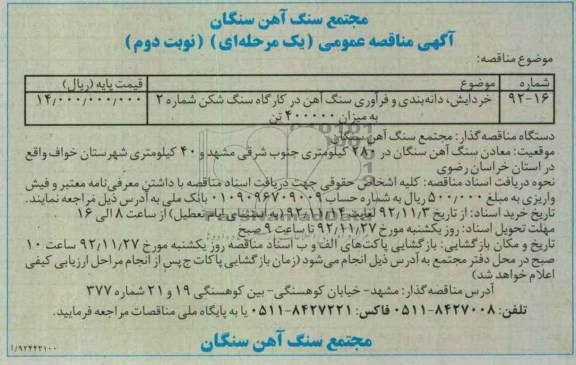 مجتمع سنگ آهن سنگان
آگهی مناقصه عمومی (یک مرحله‌ای) (نوبت دوم)
موضوع مناقصه:
شماره موضوع قیمت پایه (ریال)
۹۲-۱۶ خردایش، دانه‌بندی و فرآوری سنگ آهن در کارگاه سنگ شکن شماره ۲ ۱۴,۰۰۰,۰۰۰,۰۰۰
به میزان ۴۰۰۰۰۰ تن
دستگاه مناقصه‌گذار: مجتمع سنگ آهن سنگان
موقعیت: معادن سنگ آهن سنگان در ۲۸۰ کیلومتری جنوب شرقی مشهد و ۴۰ کیلومتری شهرستان خواف واقع
در استان خراسان رضوی
نحوه دریافت اسناد مناقصه: کلیه اشخاص حقوقی جهت دریافت اسناد مناقصه با داشتن معرفی‌نامه معتبر و فیش
واریزی به مبلغ ۵۰۰,۰۰۰ ریال به شماره حساب ۰۱۰۹۰۹۶۷۰۹۰۰۹ بانک ملی به آدرس ذیل مراجعه نمایند.
تاریخ خرید اسناد: از تاریخ ۹۲/۱۱/۳ لغایت ۹۲/۱۱/۱۴ (به استثنای ایام تعطیل) از ساعت ۸ الی ۱۶
مهلت تحویل اسناد: روز یکشنبه مورخ ۹۲/۱۱/۲۷ تا ساعت ۹ صبح
تاریخ و مکان بازگشایی: بازگشایی پاکت‌های الف و ب اسناد مناقصه روز یکشنبه مورخ ۹۲/۱۱/۲۷ ساعت ۱۰
صبح در محل دفتر مجتمع به آدرس ذیل انجام می‌شود (زمان بازگشایی پاکات ج پس از انجام مراحل ارزیابی کیفی
اعلام خواهد شد)
آدرس مناقصه‌گذار: مشهد- خیابان کوهسنگی- بین کوهسنگی ۱۹ و ۲۱ شماره ۳۷۷
تلفن: ۸۴۲۷۰۰۸-۰۵۱۱ فاکس: ۸۴۲۷۲۲۱-۰۵۱۱ یا به پایگاه ملی مناقصات مراجعه فرمایید.
مجتمع سنگ آهن سنگان
۱/۹۲۴۴۲۱۰۰